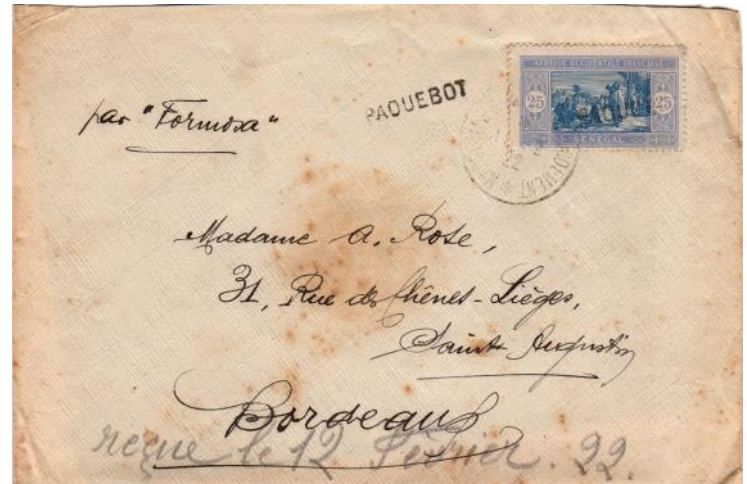 par "Formosa"
PAQUEBOT
AFRIQUE OCCIDENTALE FRANÇAISE
25 25
SÉNÉGAL
Madame A. Rose,
31, Rue des Chênes-Lièges,
Saint Augustin
Bordeaux
reçue le 12 Février. 22.